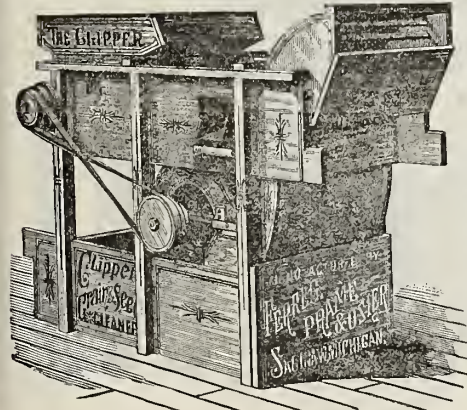 THE CLIPPER
CLIPPER
Grain & Seed
CLEANER
FERRELL
PRAME
& OSIER
SAGINAW MICHIGAN.